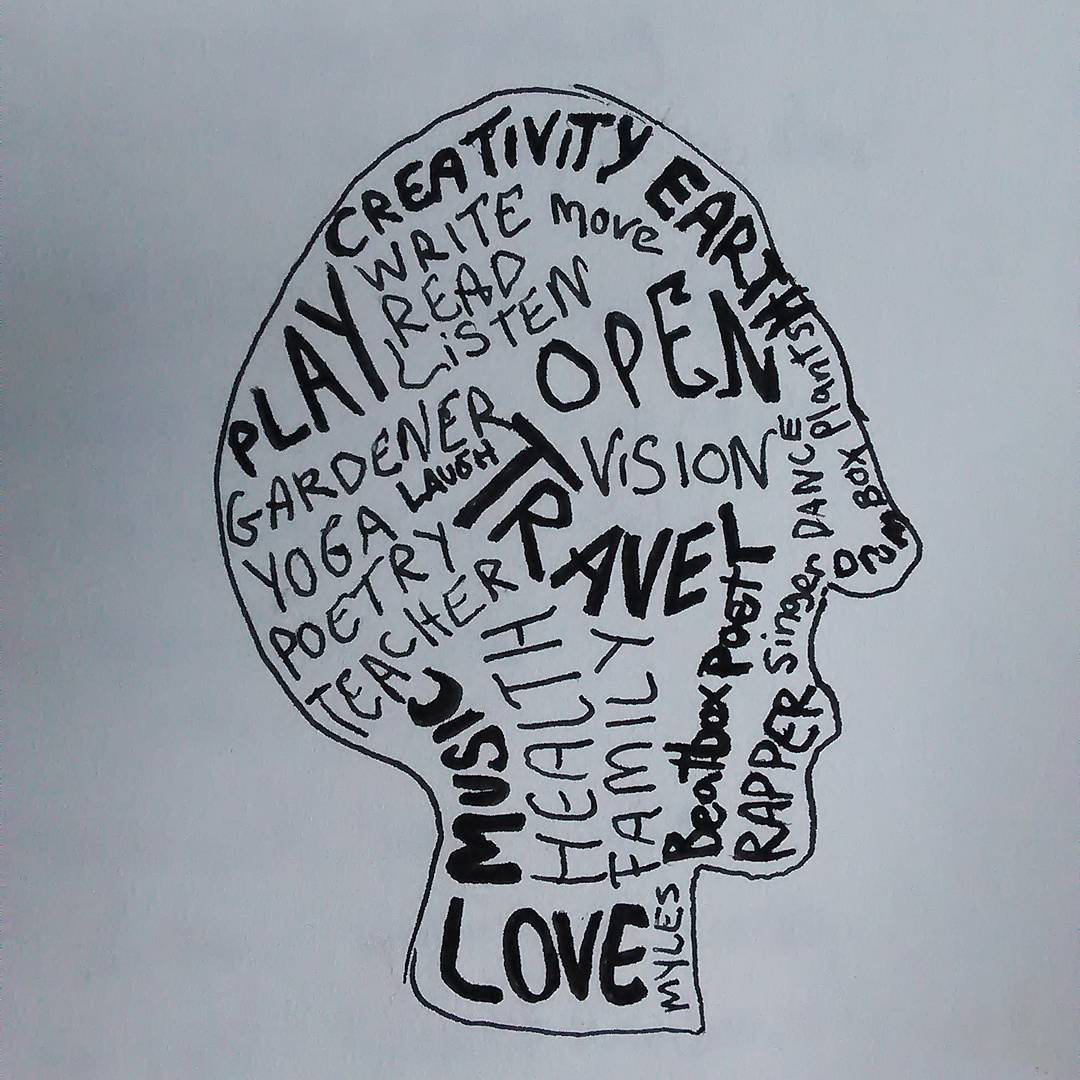 CREATiViTY
EARTH
WRITE
move
READ
LiSTEN
PLAY
OPEN
Plants
GARDENER
LAUGH
TRAVEL
ViSION
DANCE
Drum BOX
YOGA
POETRY
TEACHER
Singer
Poet
Beatbox
RAPPER
MUSIC
HEALTH
FAMILY
LOVE
MYLES